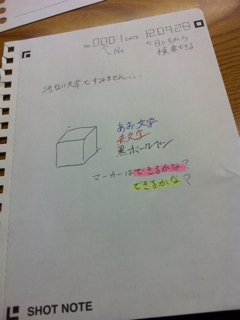 No. 000:1 DATE 12.09.28
No
日づけから
検索できる
汚ない文字ですみません...
あお文字
赤文字
黒ボールペン
マーカーはできるかな?
できるかな?
SHOT NOTE